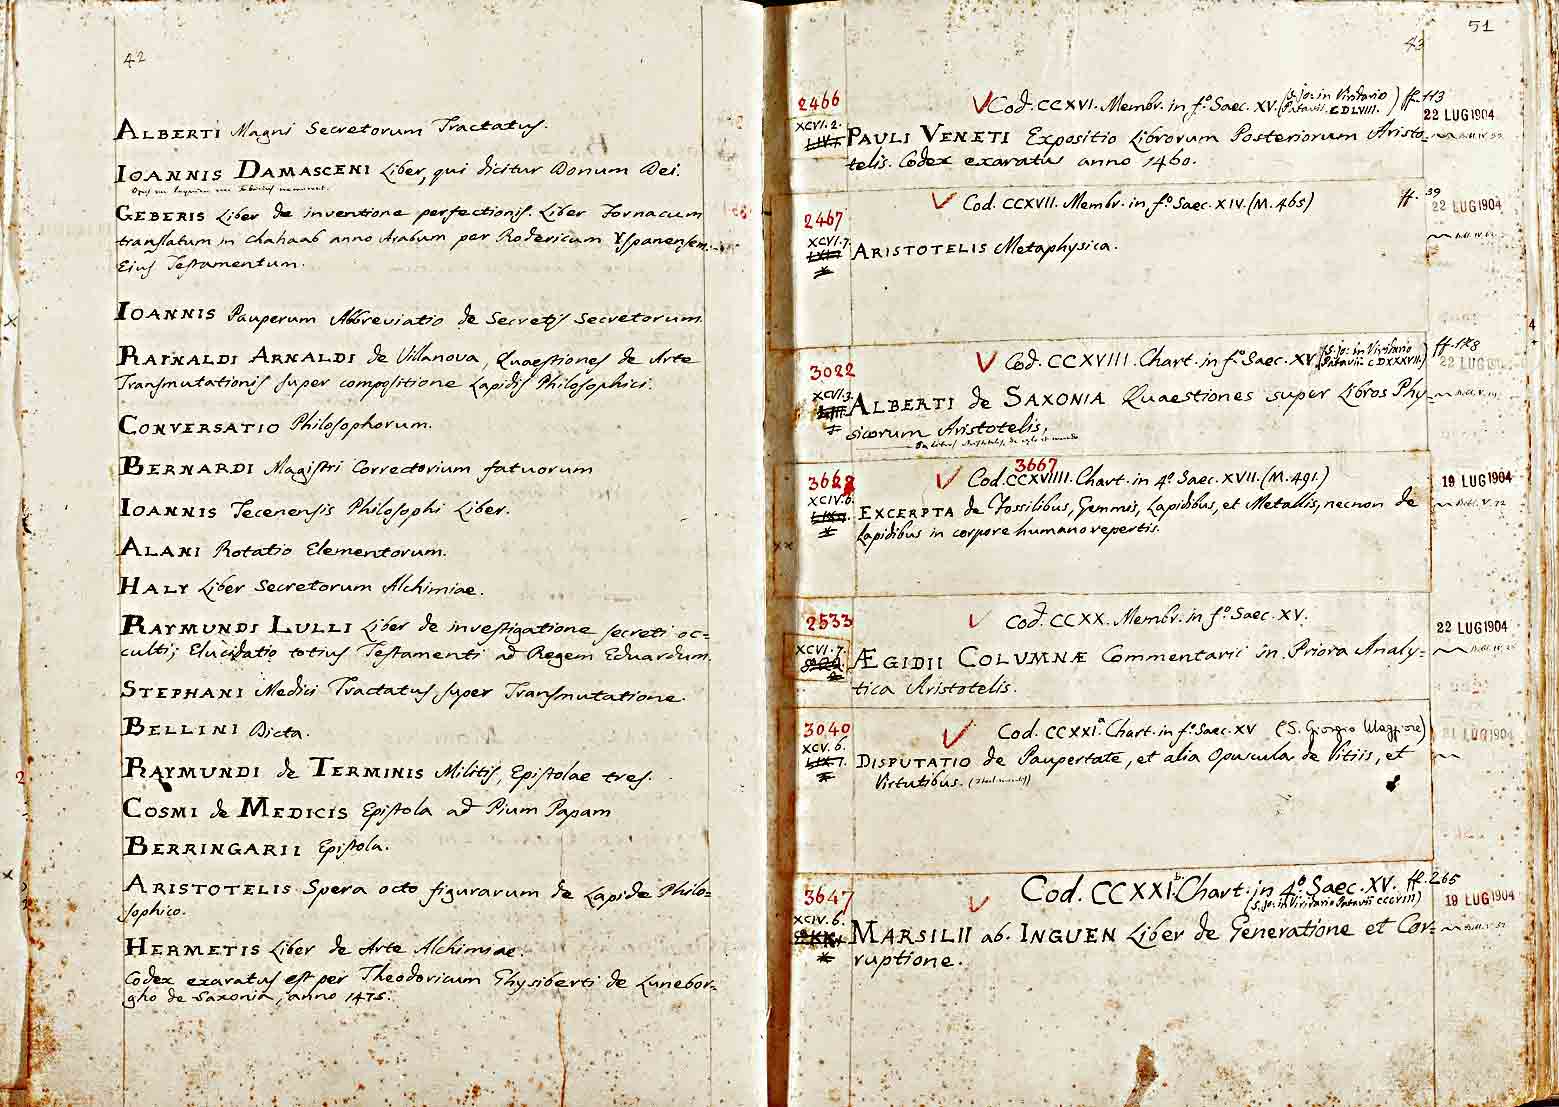 42
ALBERTI Magni Secretorum Tractatus.
IOANNIS DAMASCENI Liber, qui dicitur Donum Dei.
GEBERIS Liber de inventione perfectionis. Liber Fornacum
translatum in Chahaab anno Arabum per Rodericum Yspanensem.
Eius Testamentum.
IOANNIS Pauperum Abbreviatio de Secretis Secretorum
RAINALDI ARNALDI de Villanova, Quaestiones de Arte
Transmutationis super compositione Lapidis Philosophici.
CONVERSATIO Philosophorum.
BERNARDI Magistri Correctorium fatuorum
IOANNIS Tecenensis Philosophi Liber.
ALANI Rotatio Elementorum.
HALY Liber Secretorum Alchimiae.
RAYMUNDI LULLI Liber de investigatione secreti oc=
culti; Elucidatio totius Testamenti ad Regem Eduardum.
STEPHANI Medici Tractatus super Transmutatione.
BELLINI Dicta.
2
RAYMUNDI de TERMINIS Militis, Epistolae tres.
COSMI de MEDICIS Epistola ad Pium Papam
BERRINGARII Epistola.
ARISTOTELIS Spera octo figurarum de Lapide Philo=
sophico.
HERMETIS Liber de Arte Alchimiae.
Codex exaratus est per Theodoricum Ghysiberti de Lunebor=
gho de Saxonia, anno 1475.
51
43
2466
Cod. CCXVI. Membr. in fo. Saec. XV. (S. Jo: in Viridario
Patavii. CDLVIII.) ff. 113
22 LUG 1904
XCVI. 2.
PAULI VENETI Expositio Librorum Posteriorum Aristo=
telis. Codex exaratus anno 1460.
2467
Cod. CCXVII. Membr. in fo. Saec. XIV. (M. 465)
ff. 39
22 LUG 1904
XCVI. 7.
ARISTOTELIS Metaphysica.
3022
Cod. CCXVIII. Chart. in fo. Saec. XV. (S. Jo: in Viridario
Patavii CDXXXVII.) ff. 118
22 LUG
XCVI. 3.
ALBERTI de SAXONIA Quaestiones super Libros Phy=
sicorum Aristotelis,
3667
3662
Cod. CCXVIIII. Chart. in 4o. Saec. XVII. (M. 491.)
19 LUG 1904
XCIV. 6.
EXCERPTA de Fossilibus, Gemmis, Lapidibus, et Metallis, necnon de
Lapidibus in corpore humano repertis.
2533
Cod. CCXX. Membr. in fo. Saec. XV.
22 LUG 1904
XCVI. 7.
ÆGIDII COLUMNÆ Commentarii in Priora Analy=
tica Aristotelis.
3040
Cod. CCXXI.a Chart. in fo. Saec. XV (S. Giorgio Maggiore)
21 LUG 1904
XCV. 6.
DISPUTATIO de Paupertate, et alia Opuscula de Vitiis, et
Virtutibus.
3647
Cod. CCXXI.b Chart. in 4o. Saec. XV. ff. 265
(S. Jo: in Viridario Patavii CCCVIII)
19 LUG 1904
XCIV. 6.
MARSILII ab. INGUEN Liber de Generatione et Cor=
ruptione.